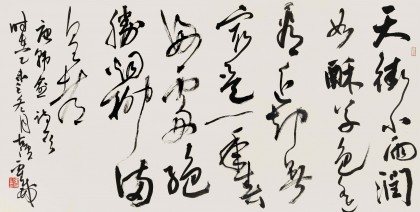 天街小雨润
如酥草色遥
看近却无
最是一年春
好处绝
勝烟柳满
皇都
唐韩愈诗